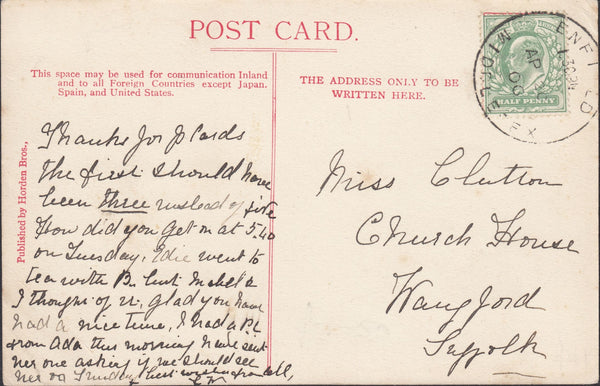 POST CARD.
This space may be used for communication Inland
and to all Foreign Countries except Japan,
Spain, and United States.
THE ADDRESS ONLY TO BE
WRITTEN HERE.
Published by Horden Bros.,
Thanks for P Cards
the first should have
been three instead of five
How did you get on at 5.40
on Tuesday, Edie went to
tea with B. but Mabel &
I thought of u. glad you have
had a nice time, I had a P.C
from Ada this morning have sent
her one asking if we should see
her on Sunday best wishes from all,
Miss Clutton
Church House
Wangford
Suffolk
ENFIELD
MIDDLESEX
1.30PM
AP
HALF PENNY